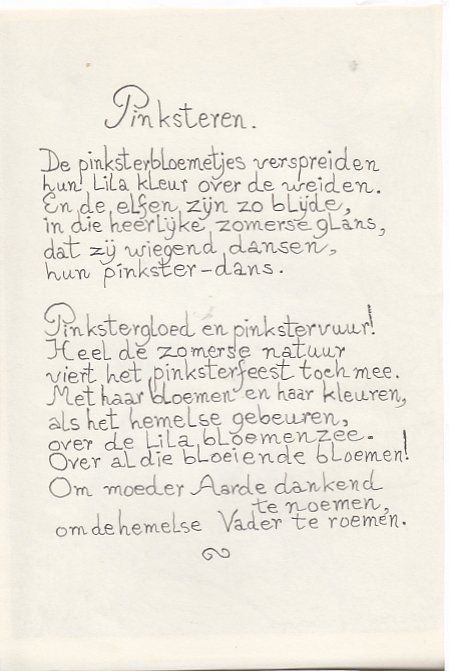 Pinksteren.
De pinksterbloemetjes verspreiden
hun lila kleur over de weiden.
En de elfen zijn zo blijde,
in die heerlijke zomerse glans,
dat zij wiegend dansen,
hun pinkster-dans.
Pinkstergloed en pinkstervuur!
Heel de zomerse natuur
viert het pinksterfeest toch mee.
Met haar bloemen en haar kleuren,
als het hemelse gebeuren,
over de lila bloemenzee.
Over al die bloeiende bloemen!
Om moeder Aarde dankend
te noemen,
om de hemelse Vader te roemen.